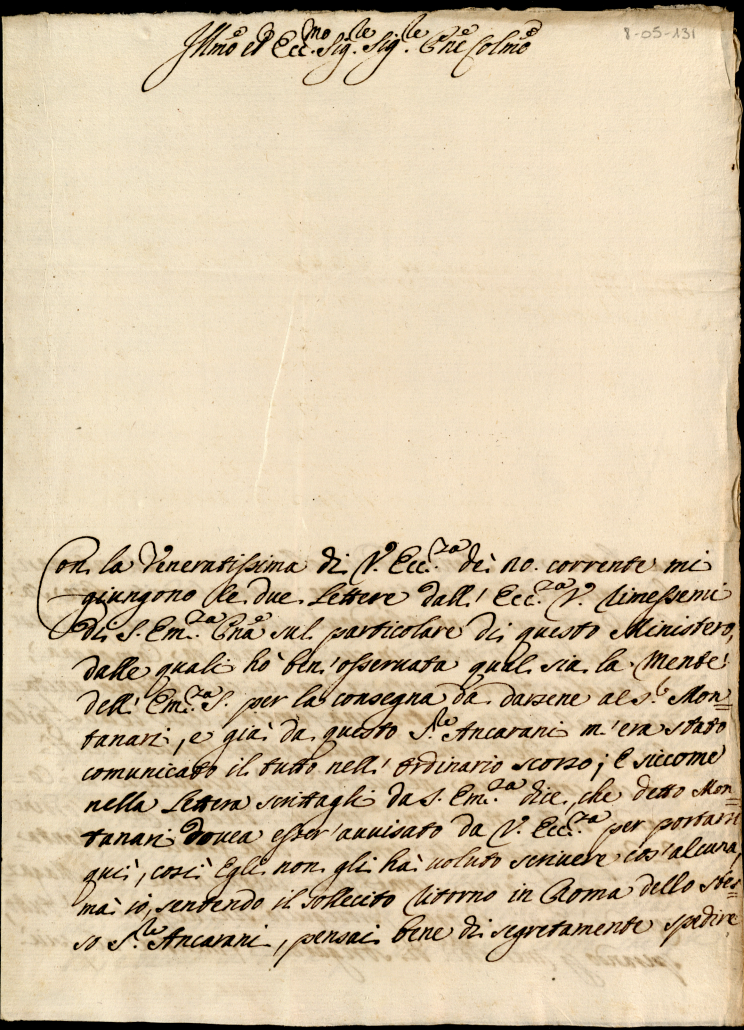 8-05-131
Ill.mo et Ecc.mo Sig.le Sig.le P.ne Col.mo
Con la Veneratissima di V. Ecc.za dè 20. corrente mi
giungono le due Lettere dall' Ecc.za V. rimessemi
di S. Em.za P.na sul particolare di questo Ministero,
dalle quali hò ben' osseruata qual sia la Mente
dell' Em.za S. per la consegna da darsene al S.le Mon=
tanari, e già da questo S.le Ancarani m'era stato
comunicato il tutto nell' ordinario scorso; E siccome
nella Lettera scrittagli da S. Em.za dice, che detto Mon=
tanari douea esser' auuisato da V. Ecc.za per portarsi
quì, così Egli non gli hà uoluto scriuere cos' alcuna,
mà io, sentendo il sollecito ritorno in Roma dello stes=
so S.le Ancarani, pensai bene di segretamente spedire